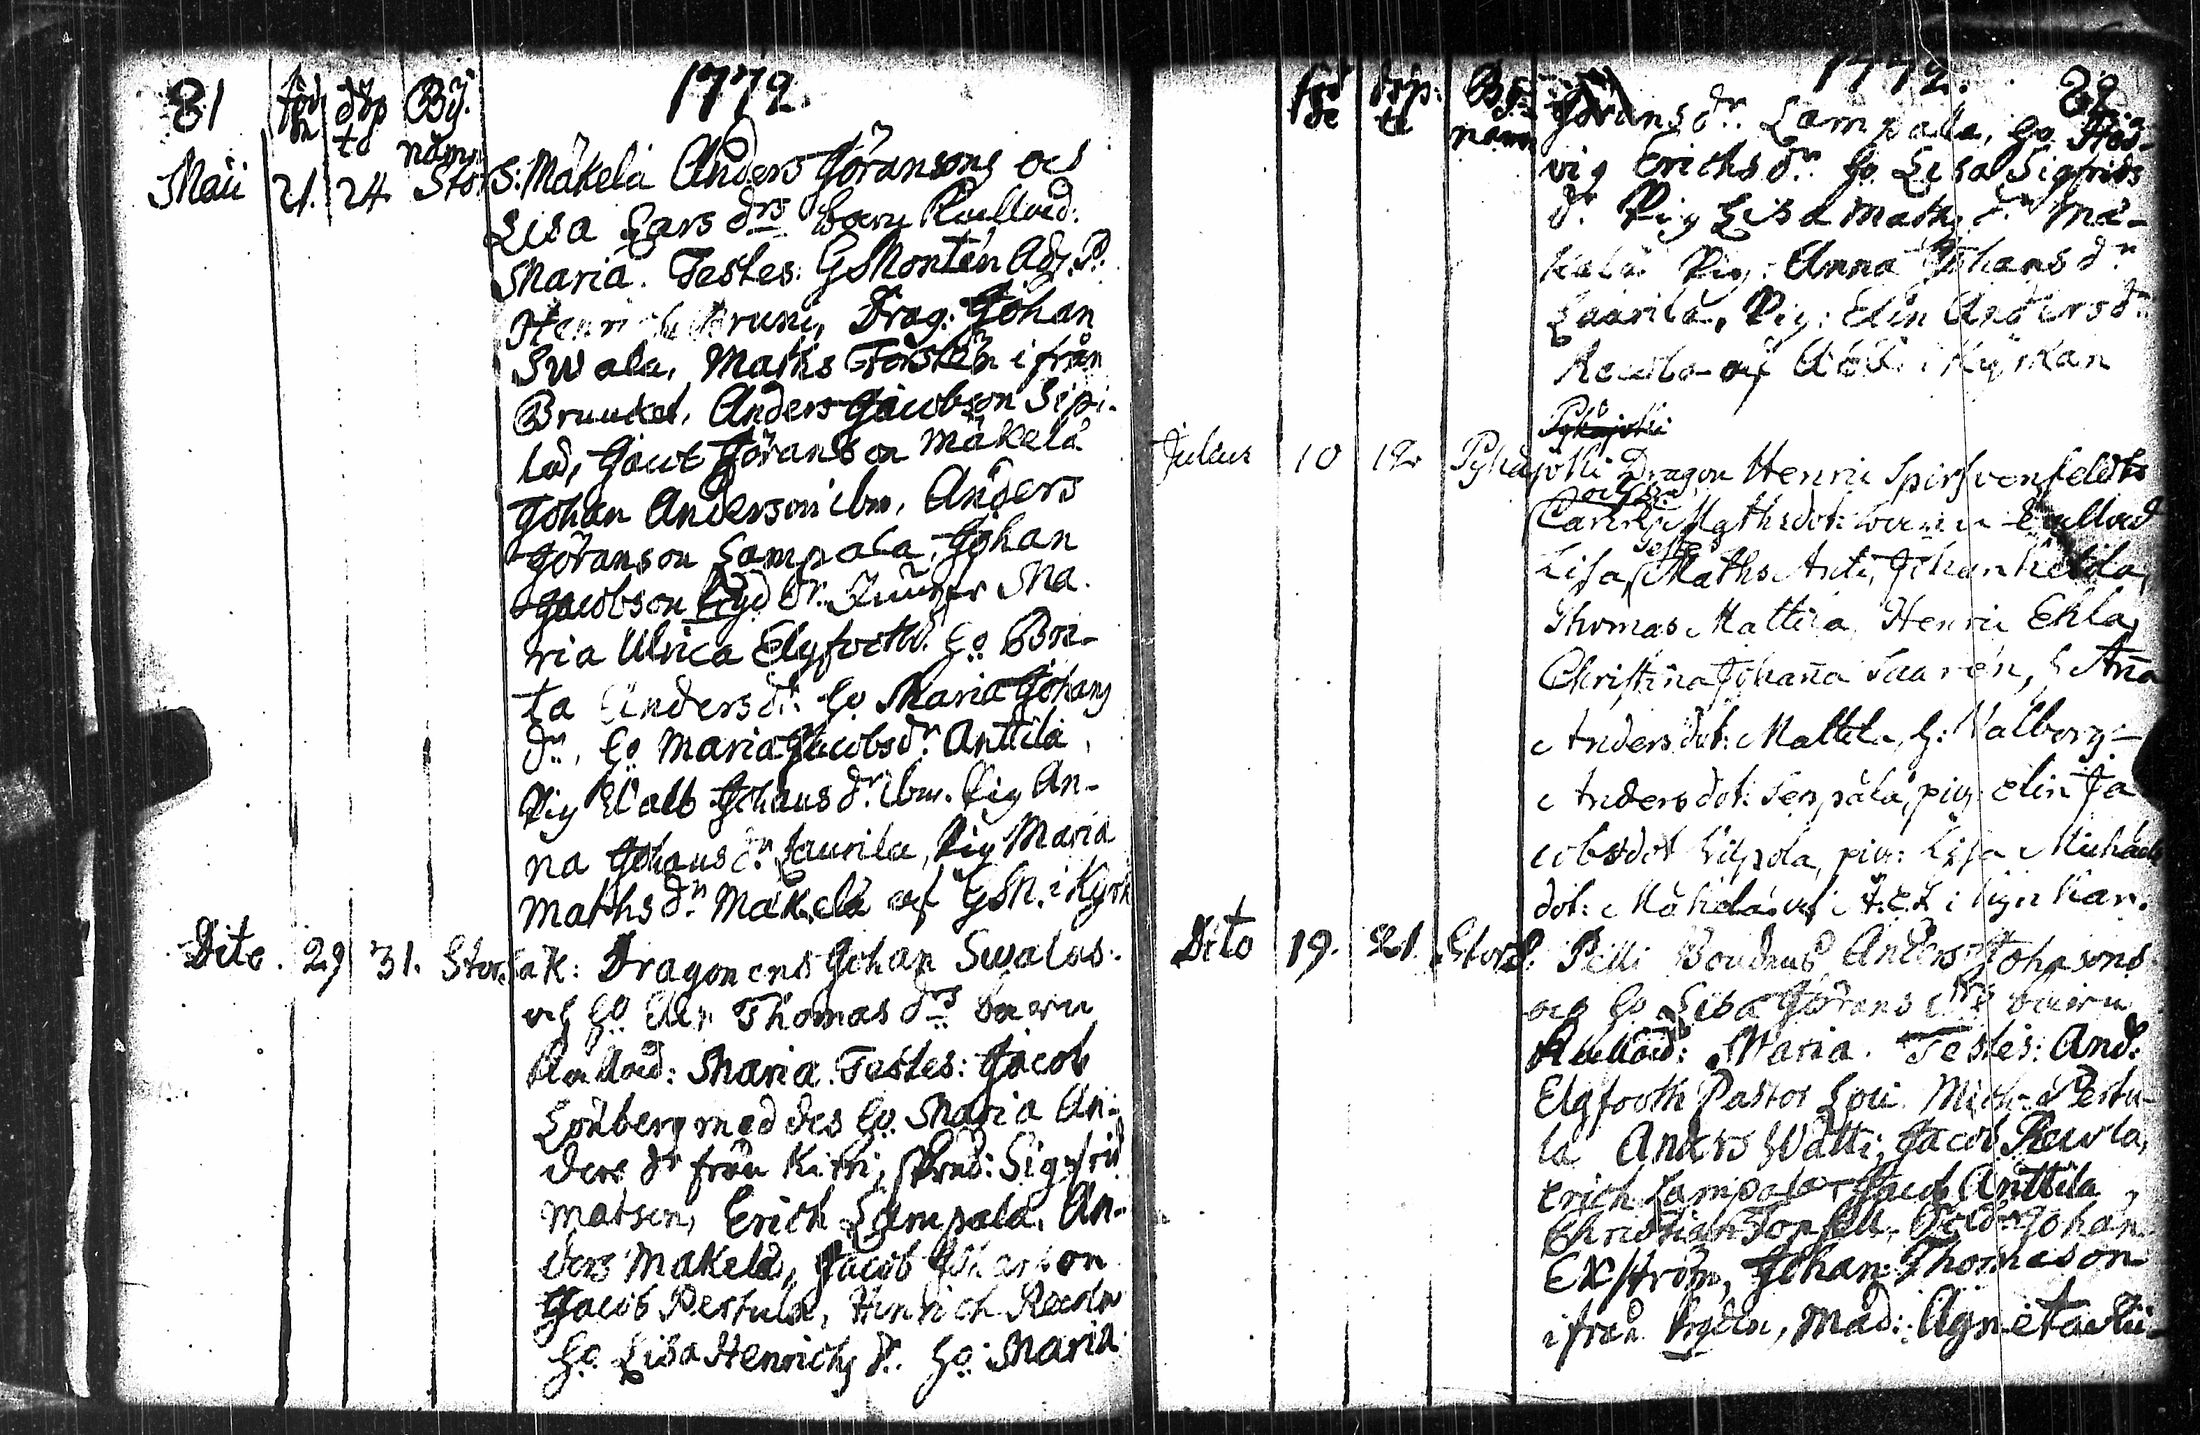 81 föd de döp te By. namn 1772.
Maii 21. 24. Stor S: Mäkelä Anders Göransons och
Lisa Lars drs barn Kallad:
Maria. Testes: G Montén Adj. P:
Henrich Bruni, Drag: Göhan
Swala, Maths Forstén ifrån
Brucket, Anders Gacobson Sipi-
lä, Gacob Göranson Mäkelä
Göhan Anderson ibm, Anders
Göranson Lampala, Göhan
Gacobson dr. Ma-
ria Ulrica Elgfooth. Ho Bri-
ta Anders dr. Ho Maria Göhans
dr, Ho Maria Gacobs dr Anttila,
Pig Walb Göhans dr ibm. Pig An-
na Göhans dr Laurila, Pig Maria
Maths dr Mäkelä af GM. i Kyrk
Dito. 29 31. Stor Säk: Dragonens Göhan Swalas
och Ho Thomas drs barn
Kallad: Maria. Testes: Gacob
Lönberg med des Ho. Maria An-
ders dr från Sigfrid
Matson, Erich Lampala, An-
ders Mäkelä, Gacob Göhanson
Gacob Pertula, Hinrich Recola
Ho Lisa Henrichs dr. Ho: Maria
föd de döp: te By: namn 1772. 82
Görans dr. Lampala, Ho Hed-
vig Erichs dr. Ho Lisa Sigfrids
dr Pig Lisa Maths dr Mä-
kelä Pig: Anna Göhans dr
Laurila, Pig: Elin Anders dr
Recola af i Kyrkan
Pyhäjoki
Julius 10 12 Pyhäjoki Dragon Henric
och H: Carin Mathsdot: barn Kallad
Lisa, Teste Maths Anti, Johan
Thomas Mattila, Henric Ekla,
Christina Johana Saarén, h Aña
Andersdot: Mattila, h: Valborg
Andersdot: Seppälä, pig: Elin Ja
cobsdot Vilpola, pig: Lisa Michaels
dot: Mäkelä af i kyrkan.
Dito 19. 21. Stor S. Pelli Anders Johnsons
och Ho Lisa Görans drs barn
Kallad: Maria. Testes: And:
Elgfooth Pastor Loci Mich: Pertu-
la Anders Watti, Gacob Recola,
Erich Lampala Gacob Anttila,
Christian Göhan
Exström, Göhan Thomason
ifrån Mad: Agneta